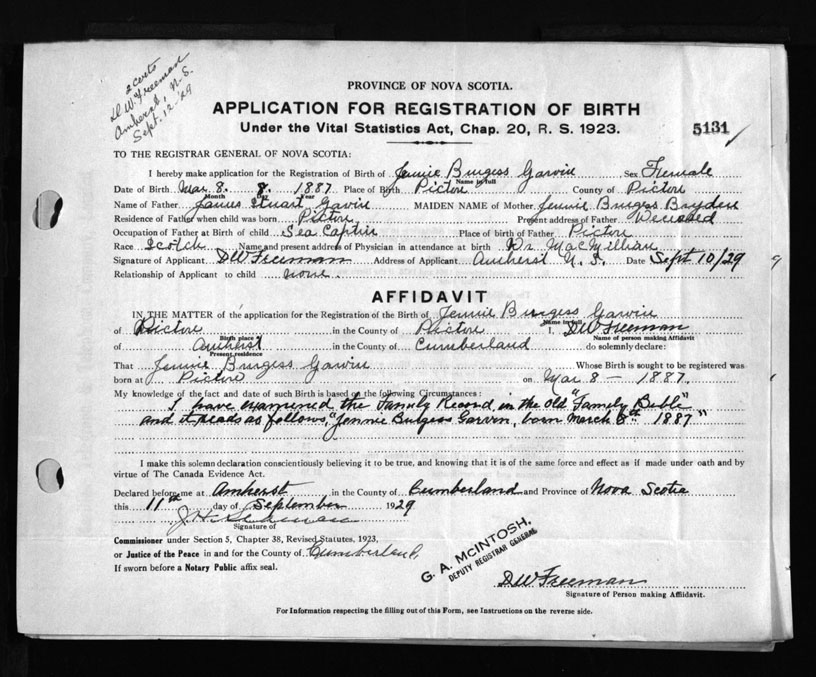 2 certs
D.W. Freeman
Amherst, N.S.
Sept. 12-29
PROVINCE OF NOVA SCOTIA.
APPLICATION FOR REGISTRATION OF BIRTH
Under the Vital Statistics Act, Chap. 20, R. S. 1923.
5131
TO THE REGISTRAR GENERAL OF NOVA SCOTIA:
I hereby make application for the Registration of Birth of Jennie Burgess Garvin Sex Female
Name in full
Date of Birth Mar 8. 8. 1887 Place of Birth Pictou County of Pictou
Month Day Year
Name of Father James Stuart Gavin MAIDEN NAME of Mother Jennie Burgess Bryden
Residence of Father when child was born Pictou Present address of Father Deceased
Occupation of Father at Birth of child Sea Captin Place of birth of Father Pictou
Race Scotch Name and present address of Physician in attendance at birth Dr MacMillian
Signature of Applicant DW Freeman Address of Applicant Amherst N. S. Date Sept 10/29
Relationship of Applicant to child none.
AFFIDAVIT
IN THE MATTER of the application for the Registration of the Birth of Jennie Burgess Garvin
Name in full
of Pictou in the County of Pictou I, DW Freeman
Birth place Name of person making Affidavit
of Amherst in the County of Cumberland do solemnly declare:
Present residence
That Jennie Burgess Garvin Whose Birth is sought to be registered was
born at Pictou on Mar 8 - 1887.
My knowledge of the fact and date of such Birth is based on the following Circumstances:
I have examined the Family Record, in the Old "Family Bible"
and it reads as follows, "Jennie Burgess Garvin, born March 8th 1887"
I make this solemn declaration conscientiously believing it to be true, and knowing that it is of the same force and effect as if made under oath and by
virtue of The Canada Evidence Act.
Declared before me at Amherst in the County of Cumberland and Province of Nova Scotia
this 11th day of September 1929
Signature of
Commissioner under Section 5, Chapter 38, Revised Statutes, 1923,
or Justice of the Peace in and for the County of Cumberland,
If sworn before a Notary Public affix seal.
G. A. McINTOSH,
DEPUTY REGISTRAR GENERAL
DW Freeman
Signature of Person making Affidavit.
For Information respecting the filling out of this Form, see Instructions on the reverse side.